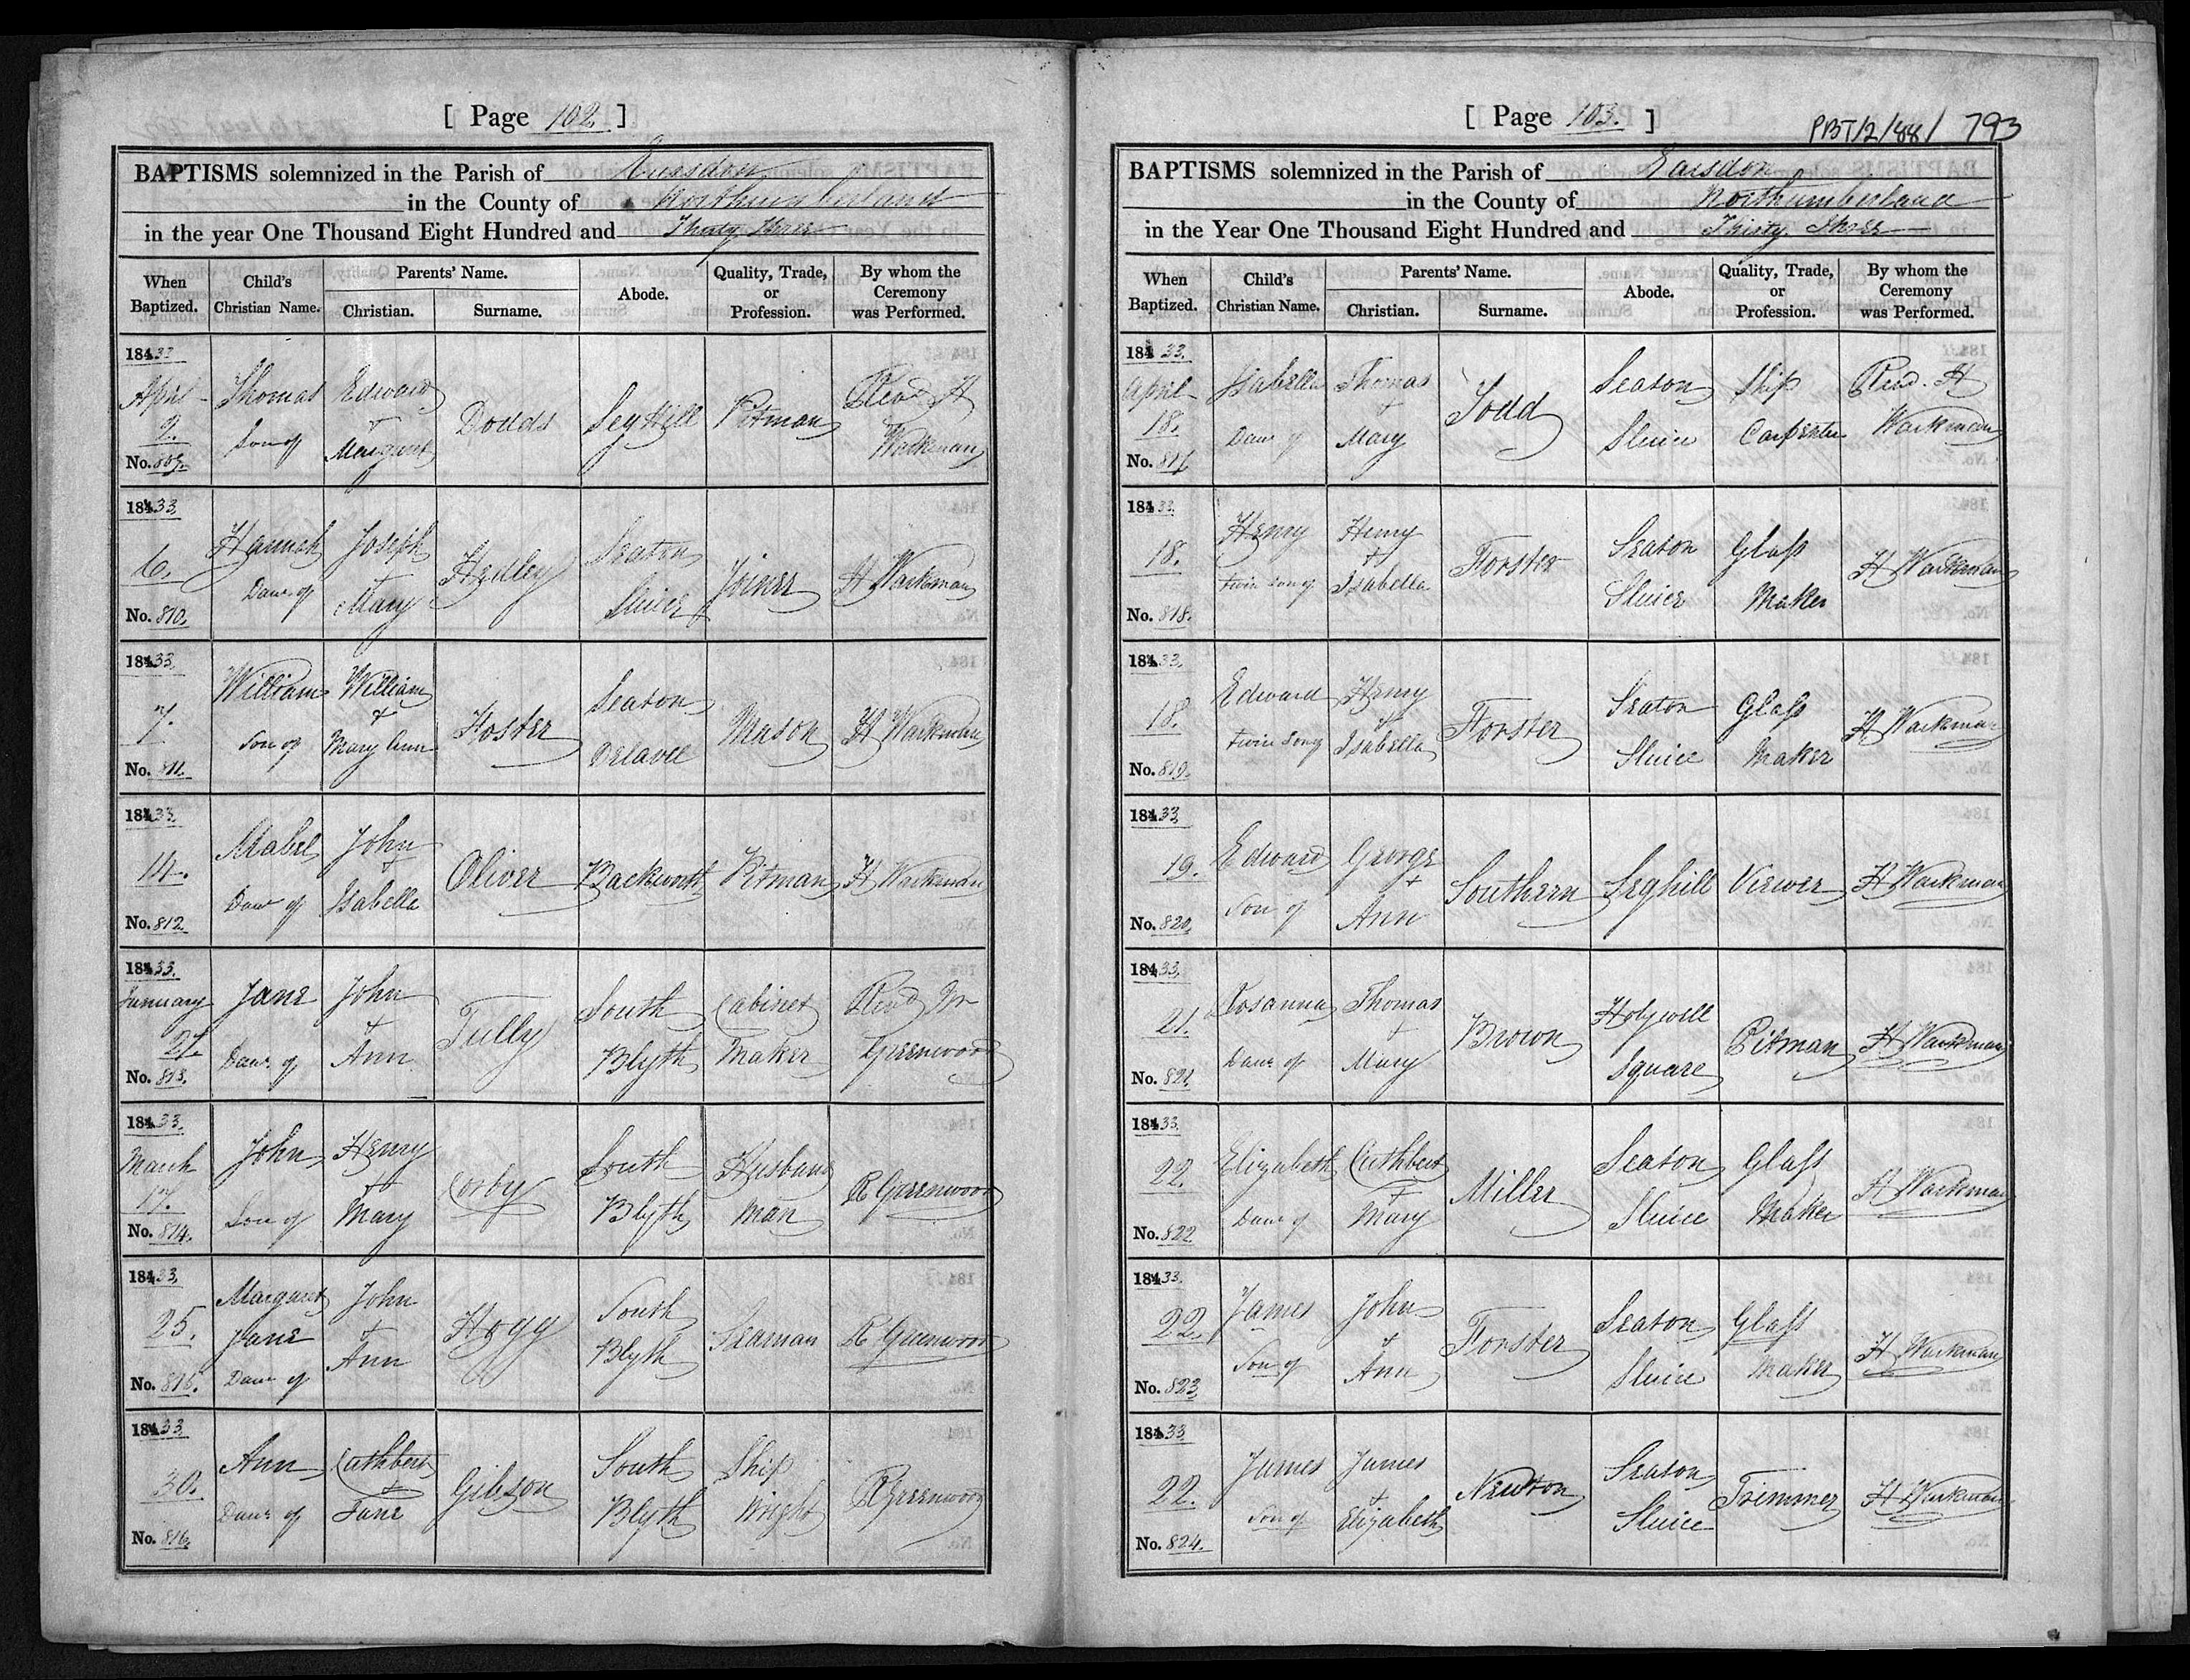 [ Page 102. ]
BAPTISMS solemnized in the Parish of Earsdon
in the County of Northumberland
in the year One Thousand Eight Hundred and Thirty Three
When Baptized.
Child's Christian Name.
Parents' Name.
Christian.
Surname.
Abode.
Quality, Trade, or Profession.
By whom the Ceremony was Performed.
18433
April 2.
No. 809.
Thomas Son of
Edward + Margaret
Dodds
Seghill
Pitman
Revd H Warkman
18433.
6.
No. 810.
Hannah Daur of
Joseph + Mary
Hedley
Seaton Sluice
Joiner
H Warkman
18433.
7.
No. 811.
William Son of
William + Mary Ann
Foster
Seaton Delavel
Mason
H Warkman
18433.
14.
No. 812.
Mabel Daur of
John + Isabella
Oliver
Backworth
Pitman
H Warkman
18433.
January 27.
No. 813.
Jane Daur of
John + Ann
Tully
South Blyth
Cabinet Maker
Revd R Greenwood
18433.
March 17.
No. 814.
John Son of
Henry + Mary
Corby
South Blyth
Husband man
R Greenwood
18433.
25.
No. 815.
Margaret Jane Daur of
John + Ann
Hogg
South Blyth
Seaman
R Greenwood
18433.
30.
No. 816.
Ann Daur of
Cuthbert + Jane
Gibson
South Blyth
Ship Wright
R Greenwood
[ Page 103. ]
PBT/2/88/ 793
BAPTISMS solemnized in the Parish of Earsdon
in the County of Northumberland
in the Year One Thousand Eight Hundred and Thirty Three
When Baptized.
Child's Christian Name.
Parents' Name.
Christian.
Surname.
Abode.
Quality, Trade, or Profession.
By whom the Ceremony was Performed.
184 33.
April 18.
No. 817
Isabella Daur of
Thomas + Mary
Todd
Seaton Sluice
Ship Carpenter
Revd. H Warkman
184 33.
18.
No. 818.
Henry twin son of
Henry + Isabella
Forster
Seaton Sluice
Glass Maker
H Warkman
18433.
18.
No. 819.
Edward twin son of
Henry + Isabella
Forster
Seaton Sluice
Glass Maker
H Warkman
18433.
19.
No. 820.
Edward Son of
George + Ann
Southern
Seghill
Viewer
H Warkman
18433.
21.
No. 821.
Rosanna Daur of
Thomas + Mary
Brown
Holywell Square
Pitman
H Warkman
18433.
22.
No. 822
Elizabeth Daur of
Cuthbert + Mary
Miller
Seaton Sluice
Glass Maker
H Warkman
18433.
22.
No. 823
James Son of
John + Ann
Forster
Seaton Sluice
Glass Maker
H Warkman
18433.
22.
No. 824.
James Son of
James + Elizabeth
Newton
Seaton Sluice
Trimmer
H Warkman